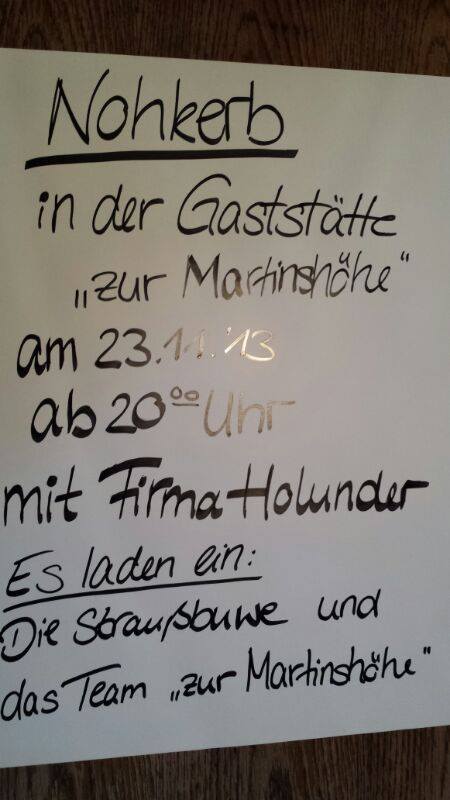 Nohkerb
in der Gaststätte
„zur Martinshöhe“
am 23.11.'13
ab 20⁰⁰ Uhr
mit Firma Holunder
Es laden ein:
Die Straußbuwe und
das Team „zur Martinshöhe“